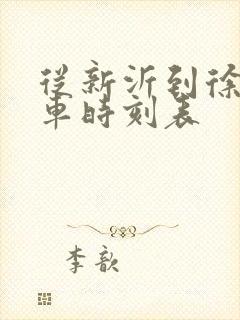 從新沂到徐
車時刻表
李歆